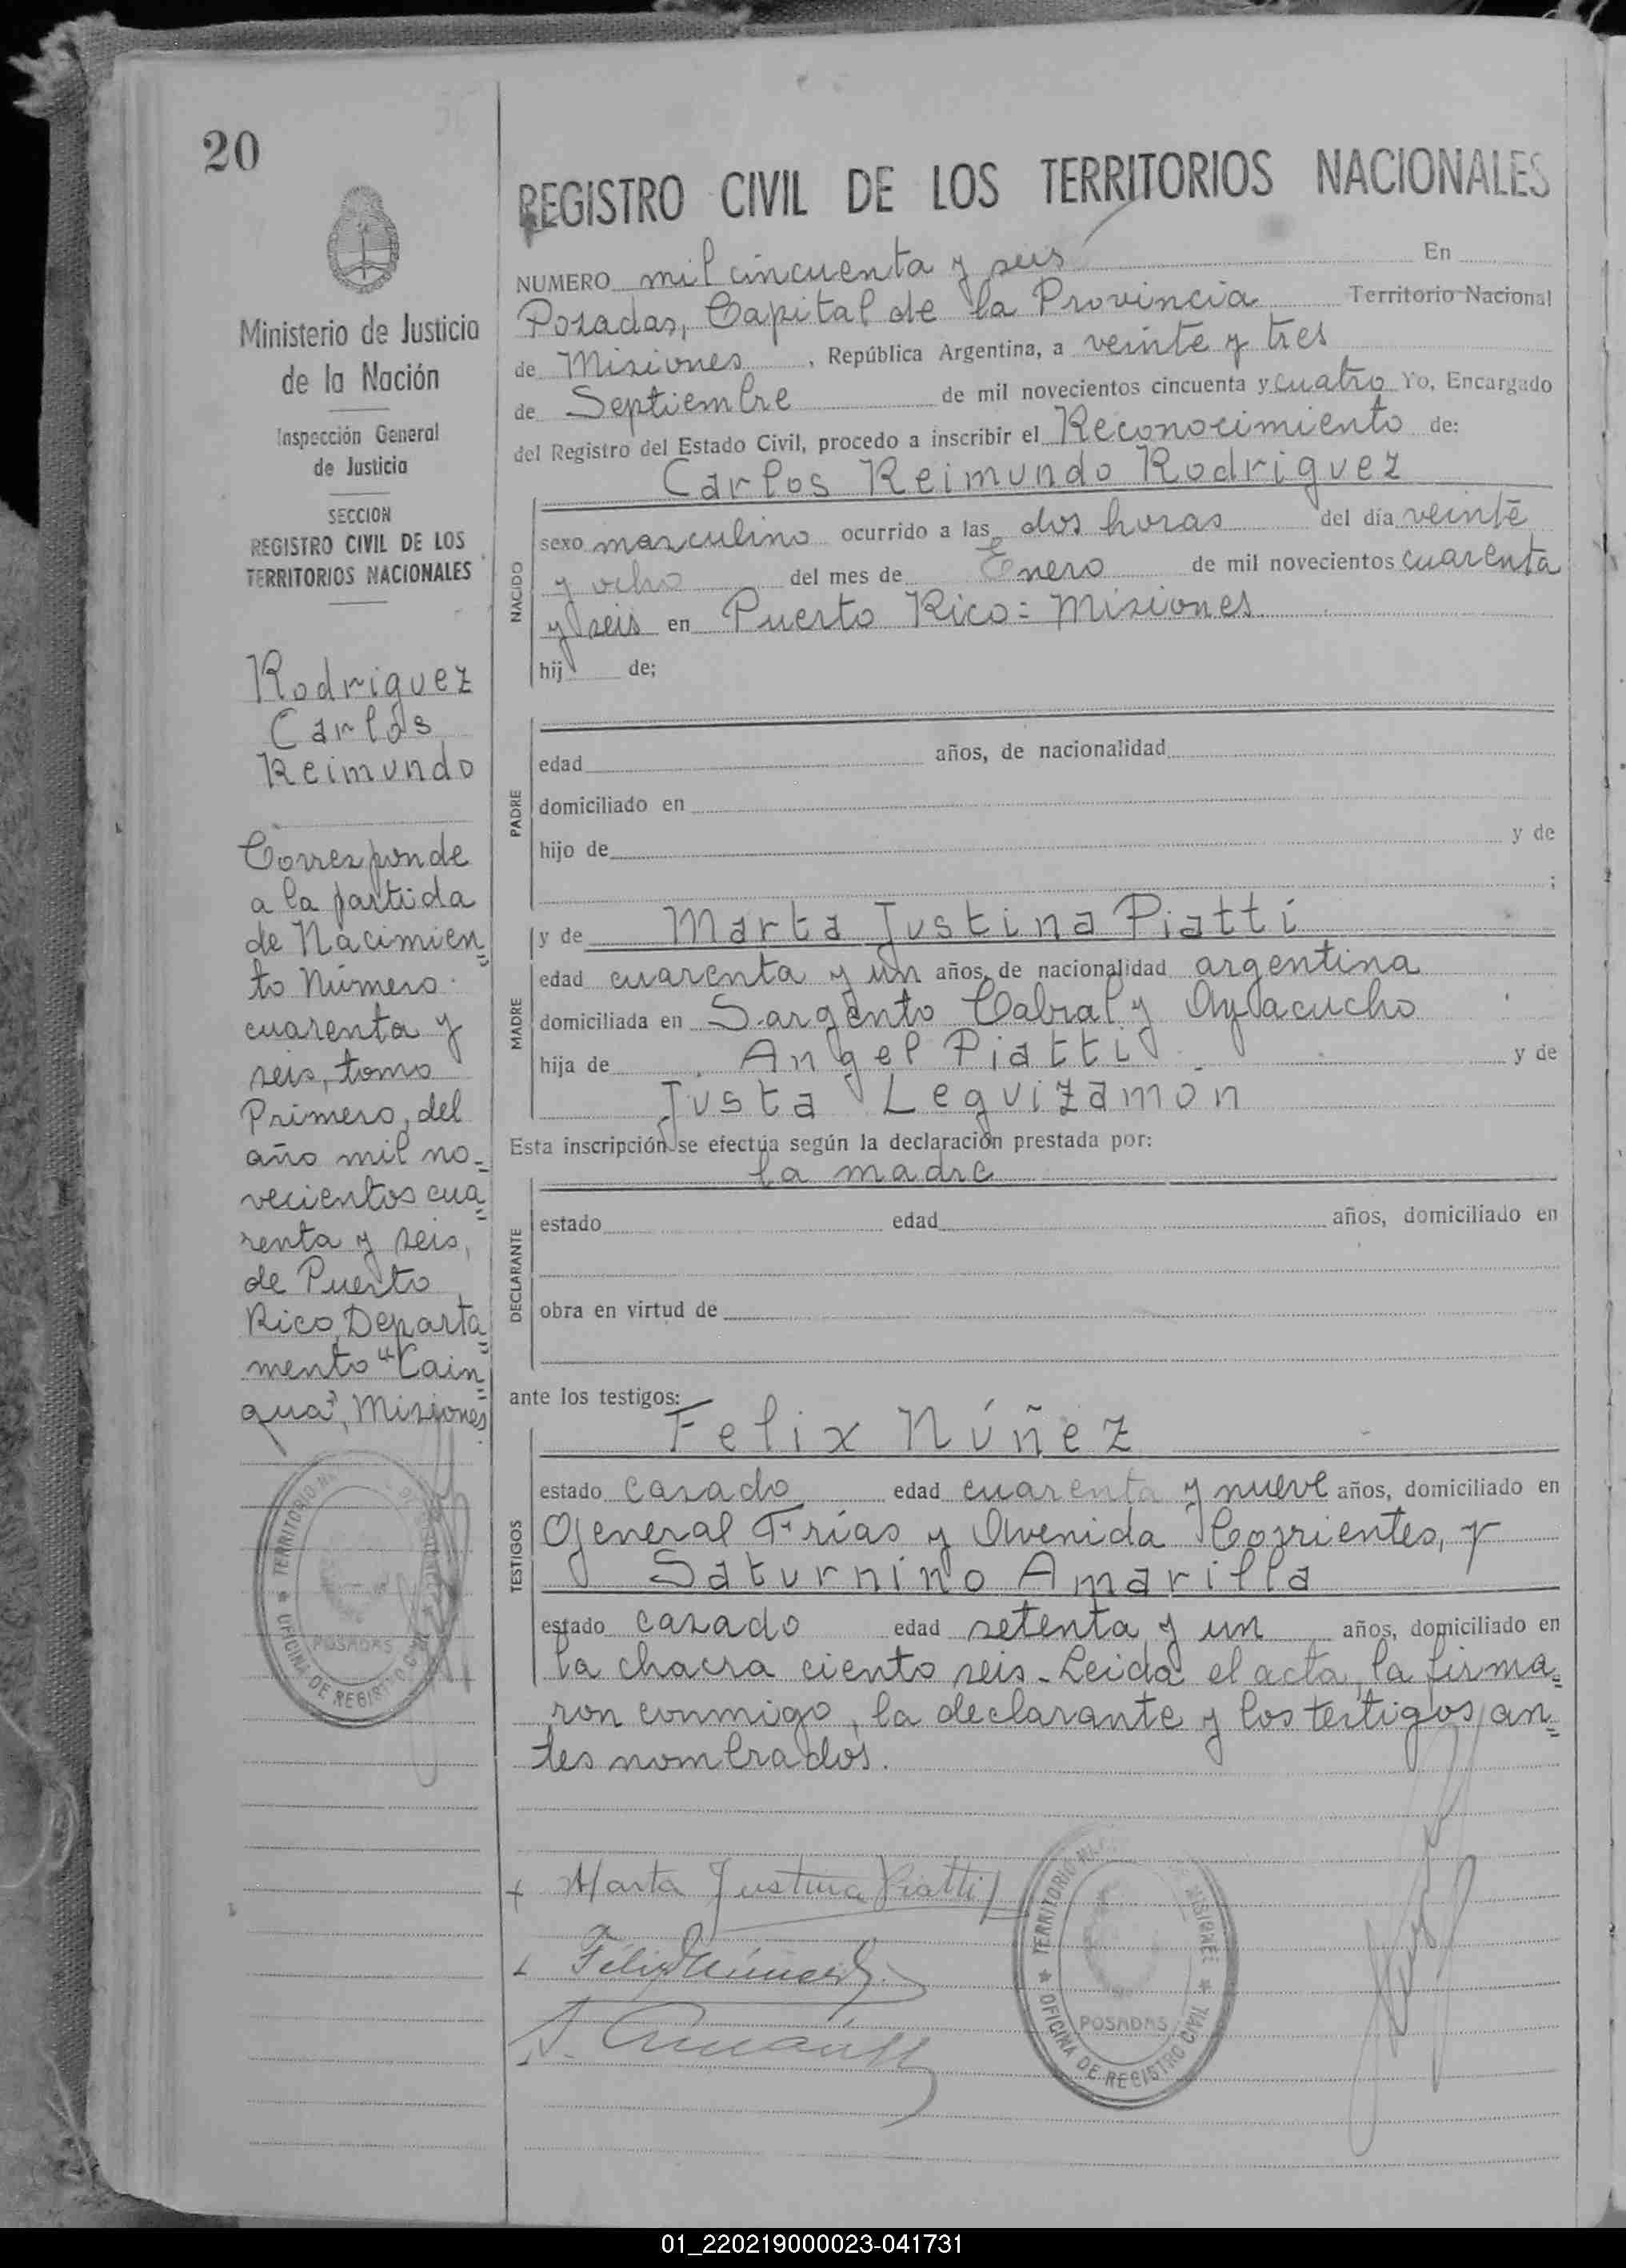 20
Ministerio de Justicia
de la Nación
Inspección General
de Justicia
SECCION
REGISTRO CIVIL DE LOS
TERRITORIOS NACIONALES
Rodriguez
Carlos
Reimundo
Corresponde
a la partida
de Nacimien=
to Número
cuarenta y
seis, tomo
Primero, del
año mil no=
vecientos cua=
renta y seis,
de Puerto
Rico, Departa=
mento "Cain=
gua", Misiones
TERRITORIO
POSADAS
OFICINA DE REGISTRO CIVIL
REGISTRO CIVIL DE LOS TERRITORIOS NACIONALES
NUMERO mil cincuenta y seis En
Posadas, Capital de la Provincia Territorio Nacional
de Misiones, República Argentina, a veinte y tres
de Septiembre de mil novecientos cincuenta y cuatro Yo, Encargado
del Registro del Estado Civil, procedo a inscribir el Reconocimiento de:
Carlos Reimundo Rodriguez
NACIDO
sexo masculino ocurrido a las dos horas del día veinte
y ocho del mes de Enero de mil novecientos cuarenta
y seis en Puerto Rico = Misiones
hij de;
PADRE
edad años, de nacionalidad
domiciliado en
hijo de y de
;
y de Marta Justina Piatti
MADRE
edad cuarenta y un años, de nacionalidad argentina
domiciliada en Sargento Cabral y Ayacucho
hija de Angel Piatti y de
Justa Leguizamón
Esta inscripción se efectúa según la declaración prestada por:
la madre
DECLARANTE
estado edad años, domiciliado en
obra en virtud de
ante los testigos:
Felix Núñez
TESTIGOS
estado casado edad cuarenta y nueve años, domiciliado en
General Frías y Avenida Corrientes, y
Saturnino Amarilla
estado casado edad setenta y un años, domiciliado en
la chacra ciento seis - Leida el acta, la firma=
ron conmigo, la declarante y los testigos an=
tes nombrados.
Marta Justina Piatti
Félix Núñez
TERRITORIO MISIONE
POSADAS
OFICINA DE REGISTRO CIVIL
01_220219000023-041731